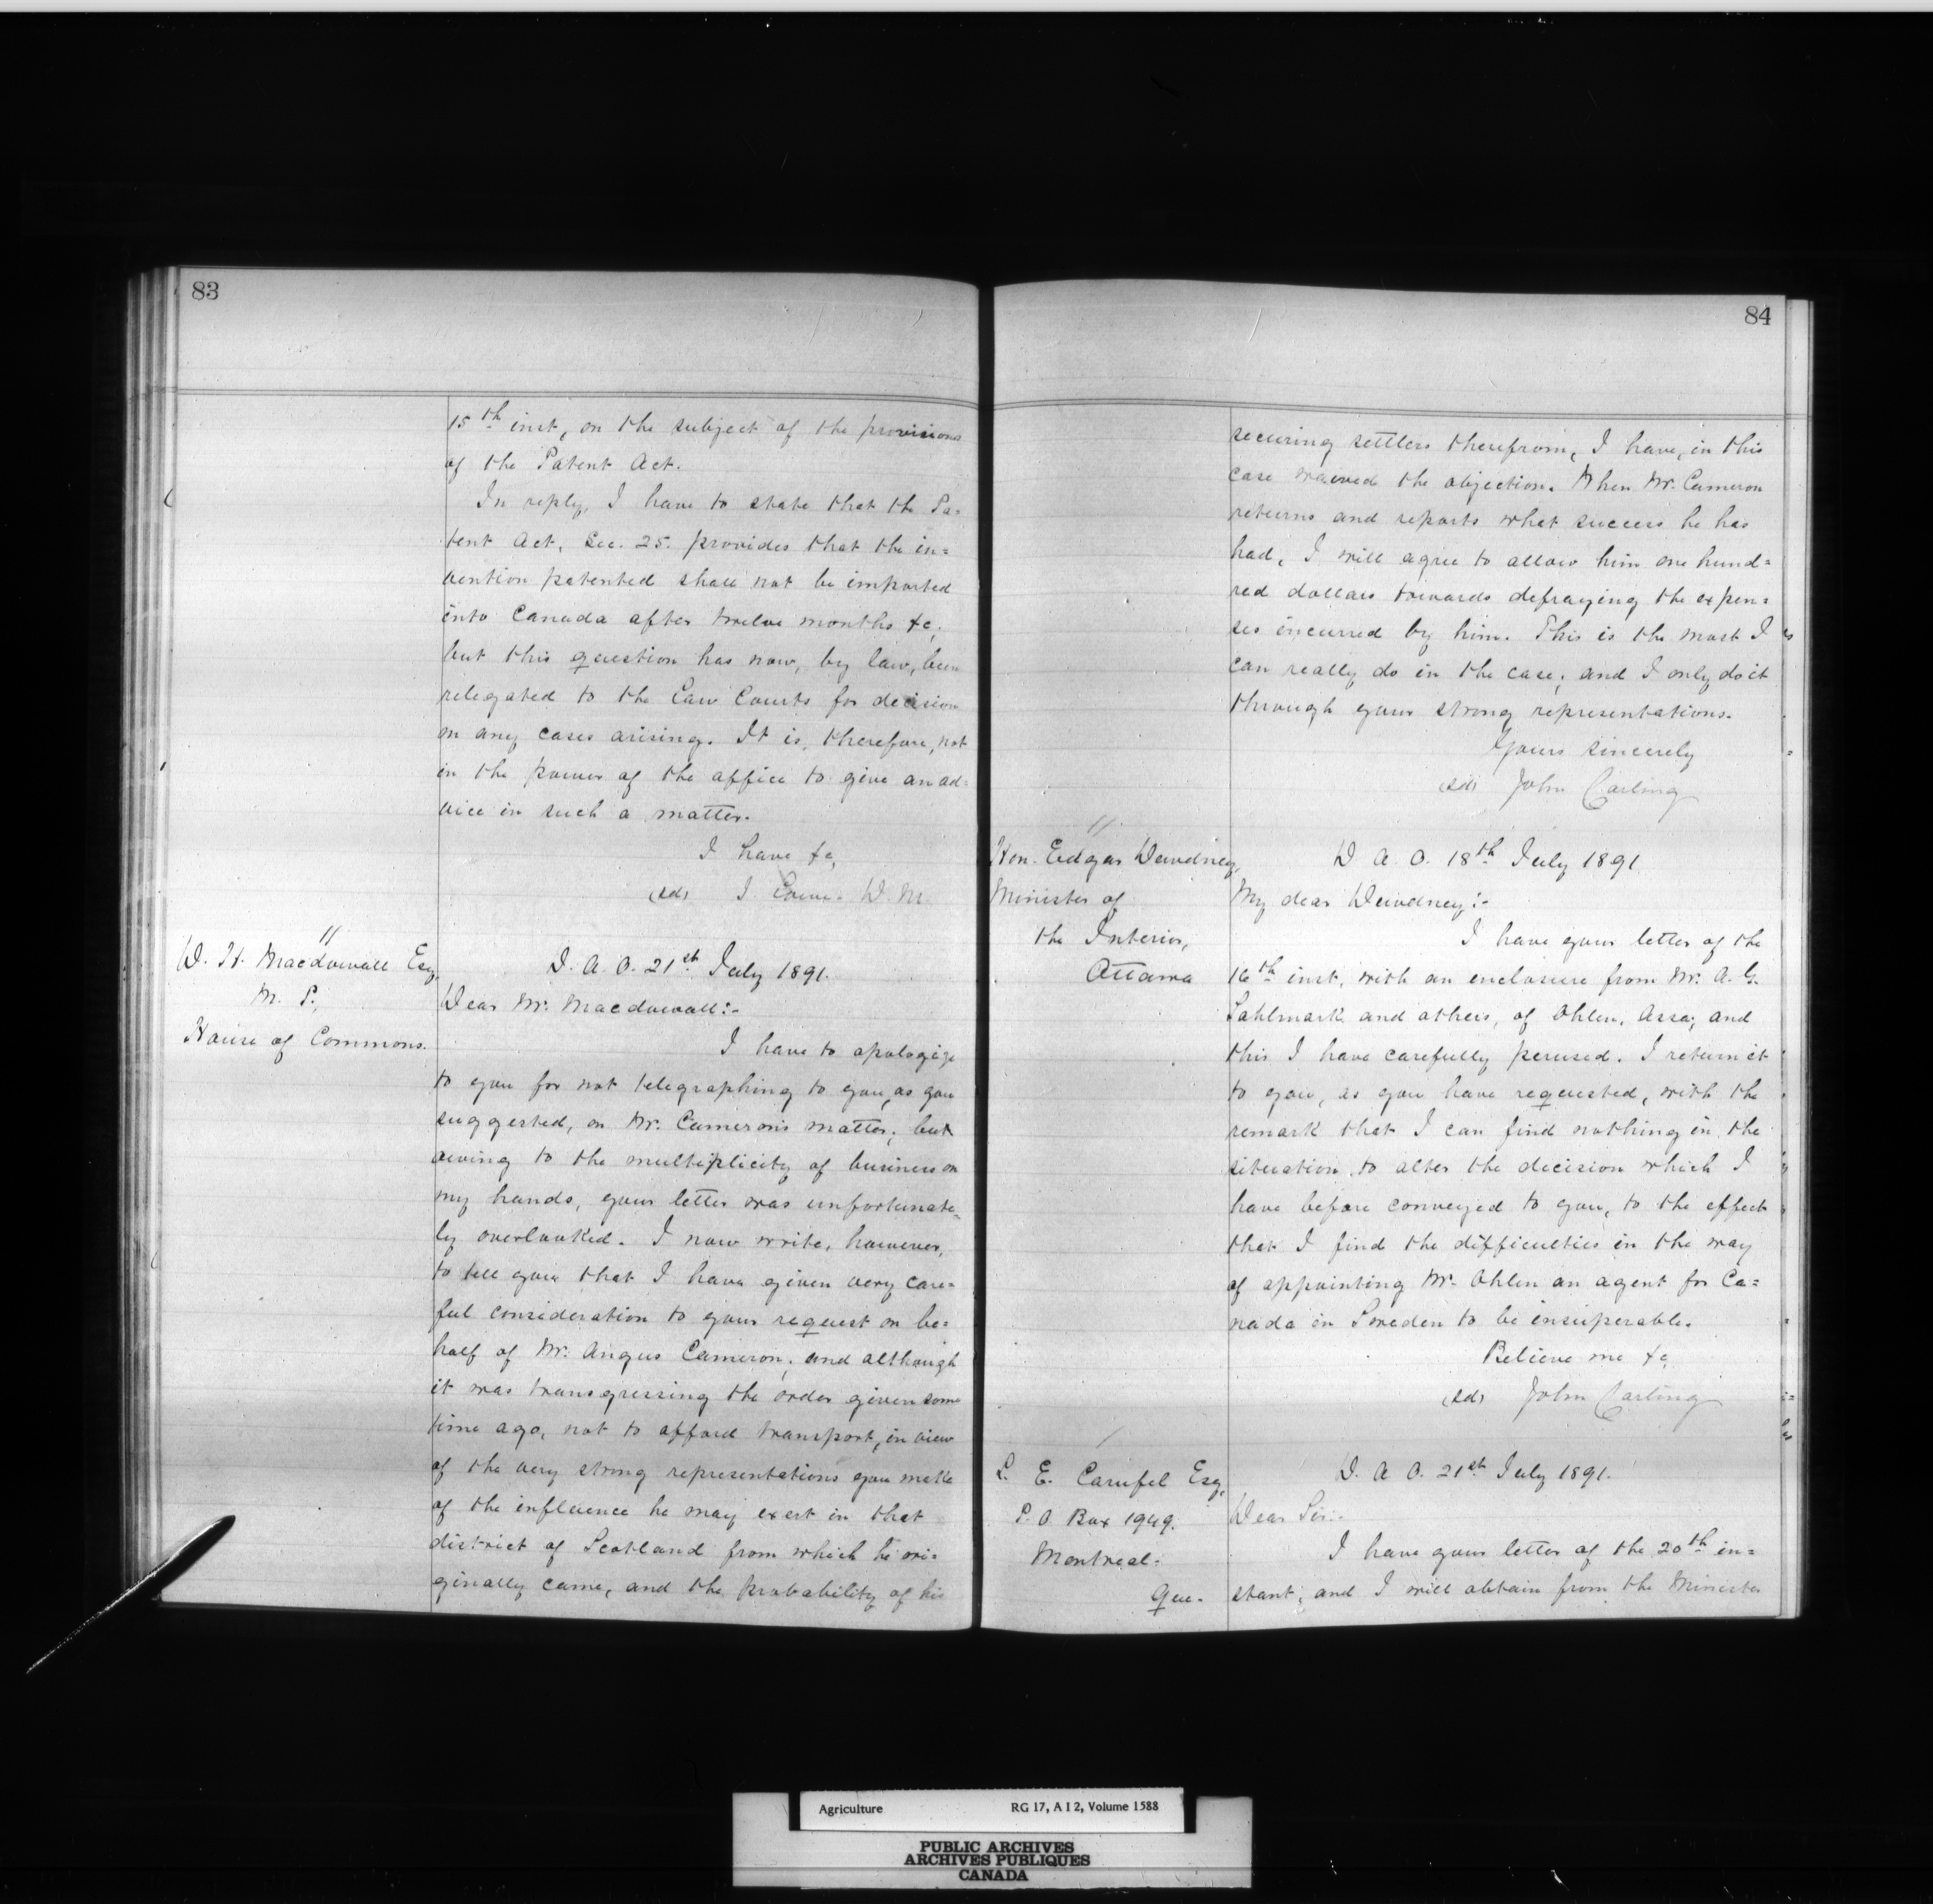 83
15th inst, on the subject of the provisions
of the Patent Act.
In reply, I have to state that the Pa=
tent Act, Sec. 25. provides that the in=
vention patented shall not be imported
into Canada after twelve months &c,
but this question has now, by law, been
relegated to the Law Courts for decision
on any cases arising. It is, therefore, not
in the power of the office to give an ad=
vice in such a matter.
I have &c,
(sd) J. Lowe. D. M.
W. H. Macdowall Esq,
M. P.,
House of Commons.
D. A. O. 21st July 1891.
Dear Mr. Macdowall:-
I have to apologize
to you for not telegraphing to you, as you
suggested, on Mr. Cameron's matter; but
owing to the multiplicity of business on
my hands, your letter was unfortunate=
ly overlooked. I now write, however,
to tell you that I have given very care=
ful consideration to your request on be=
half of Mr. Angus Cameron; and although
it was transgressing the order given some
time ago, not to afford transport, in view
of the very strong representations you make
of the influence he may exert in that
district of Scotland from which he ori=
ginally came, and the probability of his
84
securing settlers therefrom, I have, in this
case waived the objection. When Mr. Cameron
returns and reports what success he has
had, I will agree to allow him one hund=
red dollars towards defraying the expen=
ses incurred by him. This is the most I
can really do in the case; and I only do it
through your strong representations.
Yours sincerely
(sd) John Carling
Hon. Edgar Dewdney,
Minister of
the Interior,
Ottawa
D. A. O. 18th July 1891
My dear Dewdney:-
I have your letter of the
16th inst, with an enclosure from Mr. A. G.
Sahlmark and others, of Ohlen, Assa; and
this I have carefully perused. I return it
to you, as you have requested, with the
remark that I can find nothing in the
situation to alter the decision which I
have before conveyed to you, to the effect
that I find the difficulties in the way
of appointing Mr. Ohlen an agent for Ca=
nada in Sweden to be insuperable.
Believe me &c,
(sd) John Carling
L. E. Carufel Esq,
P. O. Box 1949.
Montreal.
Que.
D. A. O. 21st July 1891.
Dear Sir:-
I have your letter of the 20th in=
stant; and I will obtain from the Minister
Agriculture RG 17, A I 2, Volume 1588
PUBLIC ARCHIVES
ARCHIVES PUBLIQUES
CANADA